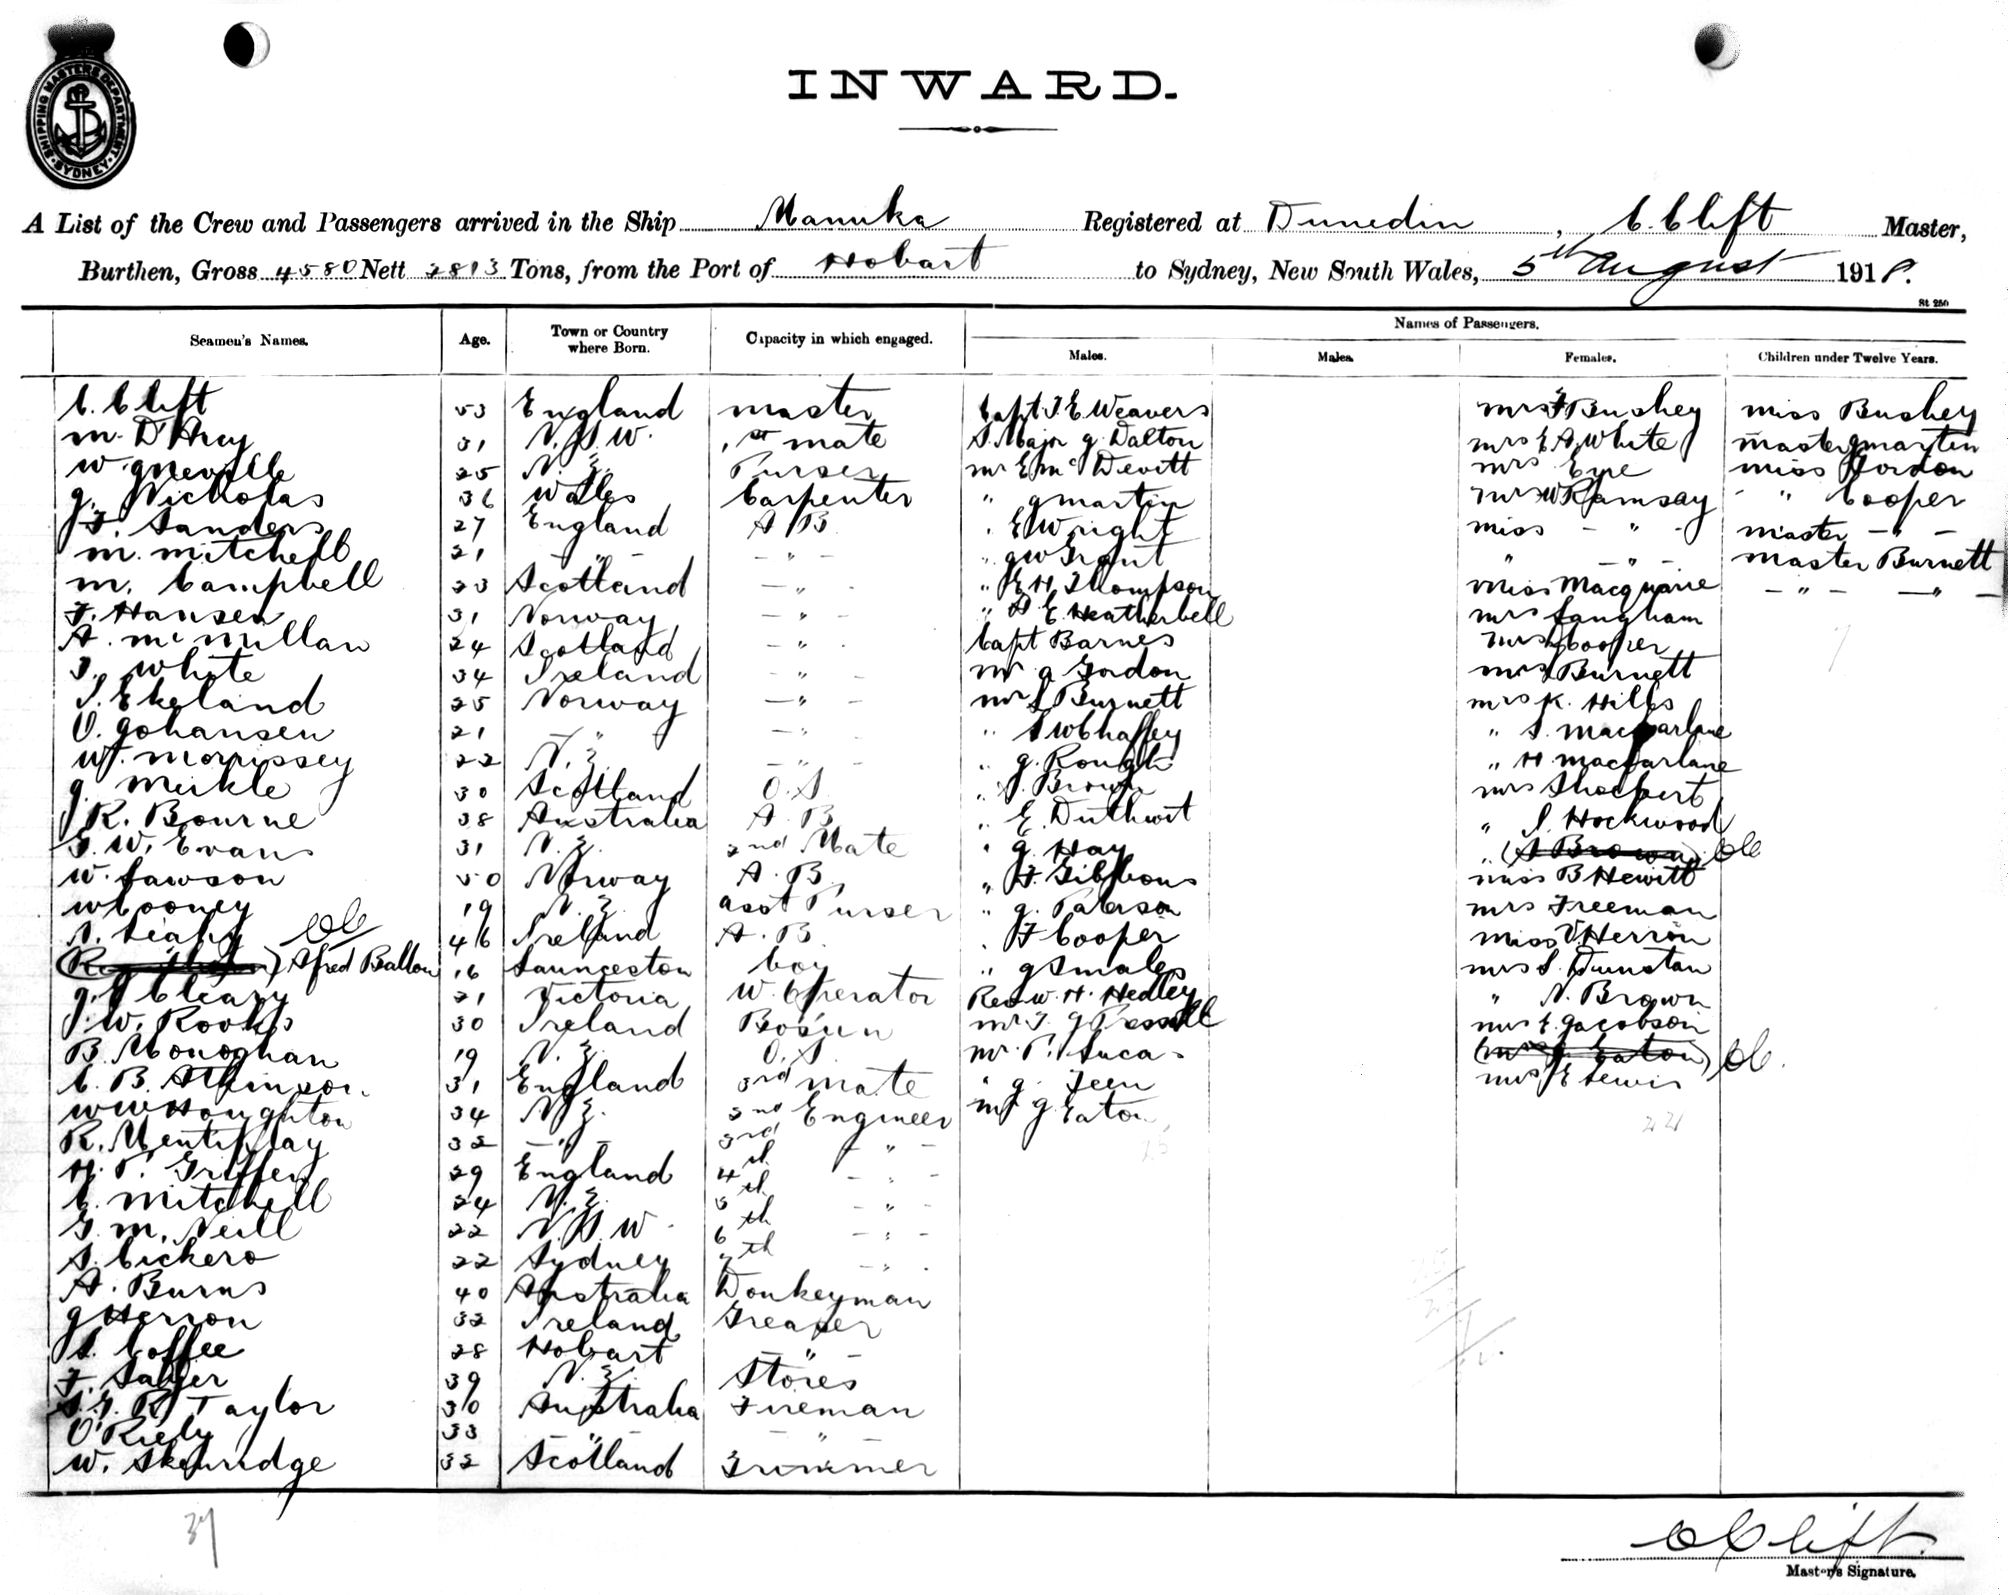 SHIPPING MASTERS DEPARTMENT SYDNEY
INWARD.
A List of the Crew and Passengers arrived in the Ship Manuka Registered at Dunedin, C. Clift Master,
Burthen, Gross 4580 Nett 2813 Tons, from the Port of Hobart to Sydney, New South Wales, 5th August 1918.
St 250
Names of Passengers.
Seamen's Names. Age. Town or Country where Born. Capacity in which engaged. Males. Males. Females. Children under Twelve Years.
C. Clift 53 England master Capt J. E. Weavers mrs F Bushey miss Bushey
m. D'Arcy 31 N.S.W. 1st mate S. Major g. Dalton mrs E A White master g martin
W. g neville 25 N.Z. Purser mr E mc Devitt mrs Eyre miss Gordon
g. Nicholas 36 Wales Carpenter " g martin mrs W Ramsay " Cooper
F. Sanders 27 England A B " E Wright miss - " - master - " -
m. mitchell 21 - " - - " - " g w Grant " - " - master Burnett
m. Campbell 23 Scotland - " - " E H Thompson miss Macquarie - " - - " -
F. Hansen 31 Norway - " - " A E Heatherbell mrs Langham
A. mc millan 24 Scotland - " - Capt Barnes mrs Cooper
J. White 34 Ireland - " - mr a Gordon mrs Burnett
S. Ekeland 25 Norway - " - mr S Burnett mrs K. Hills
O. Johansen 21 - " - - " - " S W Chaffey " S. macfarlane
W. J. morrissey 22 N.Z. - " - " g. Rough " H. macfarlane
g. Meikle 30 Scotland O.S. " S. Brown mrs
J. R. Bourne 38 Australia A. B. " E. Duthwit " S. Hockwood
G. W. Evans 31 N.Z. 2nd Mate " g. Hay " (A Brown) CC
W. Lawson 50 Norway A. B. " H. Gibbons miss B Hewitt
W Cooney 19 N.Z. asst Purser " g. Paterson mrs Freeman
A. Leahy CC 46 Ireland A. B " F Cooper miss V Herron
Alfred Ballon 16 Launceston boy " g Smales mrs S. Dunstan
g. J Cleary 21 Victoria W. Operator Rev W. H. Hedley " N. Brown
J. W. Rooks 30 Ireland Bosun mr J. g mrs E. Jacobson
B. Monoghan 19 N.Z. O.S. mr P. Lucas (mrs g Eaton) CC.
C. B. Atkinson 31 England 3rd mate " g. Teen mrs E Lewis
W W Houghton 34 N.Z. 2nd Engineer mr g Eaton
R. Mentiplay 32 - " - 3rd - " - 25 221
H. P. Griffen 29 England 4th - " -
C. Mitchell 24 N.Z. 5th - " -
G. M. Neill 22 N.S.W. 6th - " -
S. Cickero 22 Sydney 7th - " -
A. Burns 40 Australia Donkeyman
g Herron 32 Ireland Greaser
S. Coffee 28 Hobart - " -
F. Salter 39 N.Z. Stores
S. G. R. Taylor 30 Australia Fireman
O'Riely 33 - " - - " -
W. Skenridge 32 Scotland Trimmer
37
C Clift.
Master's Signature.